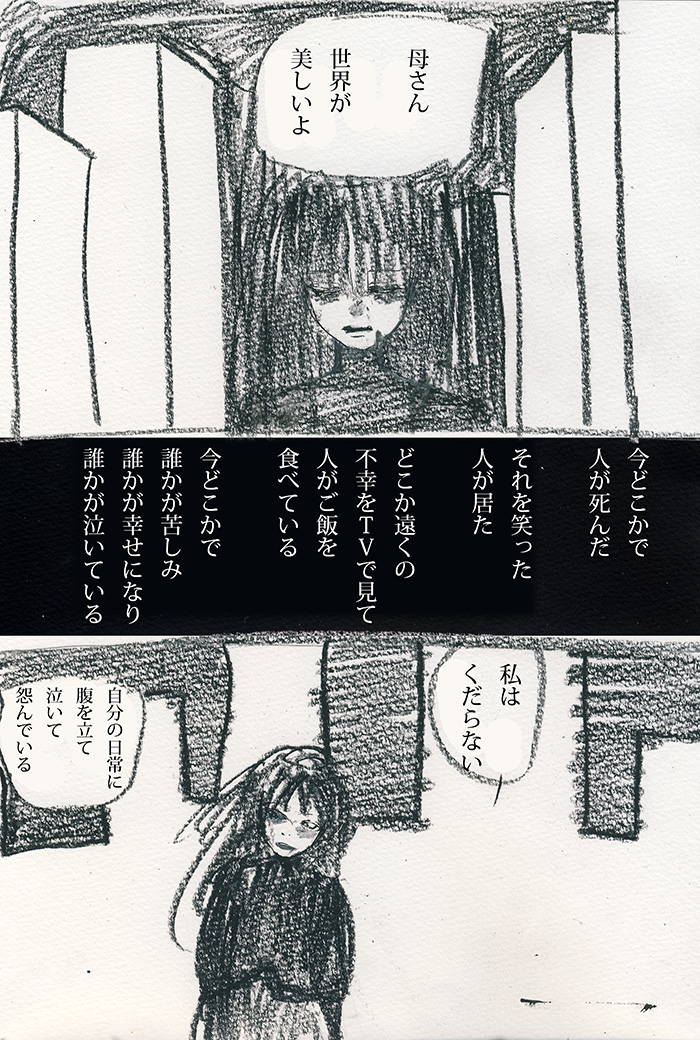 母さん
世界が
美しいよ
今どこかで
人が死んだ
それを笑った
人が居た
どこか遠くの
不幸をTVで見て
人がご飯を
食べている
今どこかで
誰かが苦しみ
誰かが幸せになり
誰かが泣いている
私は
くだらない
自分の日常に
腹を立て
泣いて
怨んでいる